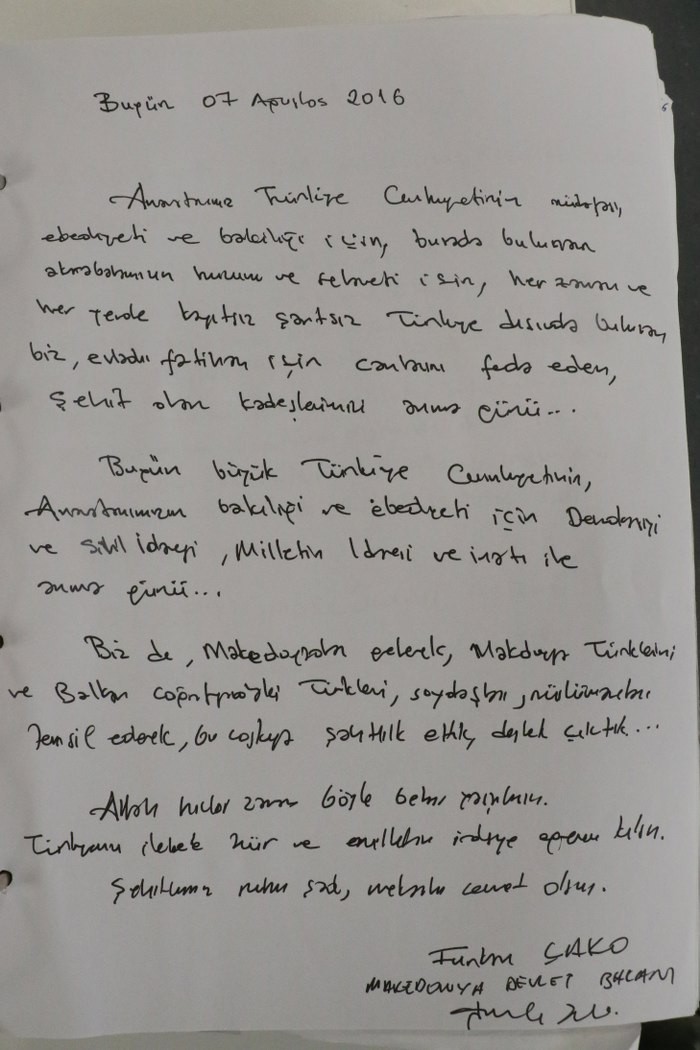 Bugün 07 Agustos 2016
Anavatanımız Türkiye Cumhuriyetinin müdafası,
ebediyeti ve bakiliği için, burada bulunan
akrabalarımızın huzuru ve selameti için, her zaman ve
her yerde kayıtsız şartsız Türkiye dışında bulunan
biz, evladı fatihan için canlarını feda eden,
Şehit olan kadeşlerimizi anma günü...
Bugün büyük Türkiye Cumhuriyetinin,
Anavatanımızın bakiliği ve ebediyeti için
ve Sivil İdareyi, Milletin İdaresi ve inatı ile
anma günü...
Biz de, Makedonyadan gelerek, Makedonya Türklerini
ve Balkan coğrafyasındaki Türkleri, soydaşları, müslümanları
temsil ederek, bu coşkuya şahitlik ettik, destek çıktık...
Allah hiçbir zaman böyle belası yaşatmasın.
ilelebet hür ve kılsın.
Şehitlerimiz ruhu şad, mekanları cennet olsun.
Furkan ÇAKO
MAKEDONYA DEVLET BAKANI